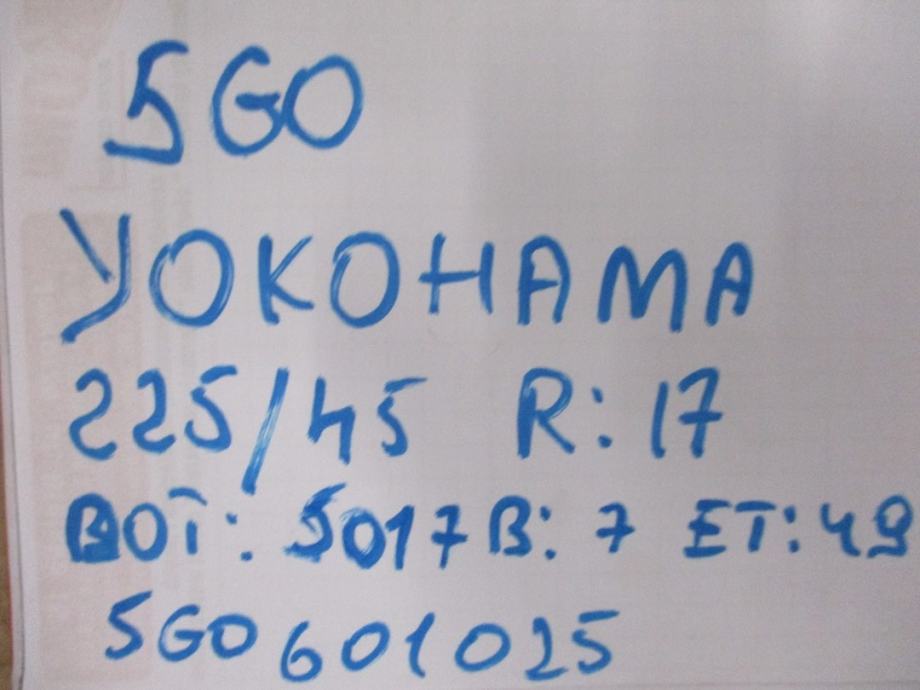 5GO
YOKOHAMA
225/45 R:17
DOT: 5017 B: 7 ET:49
5GO 601025